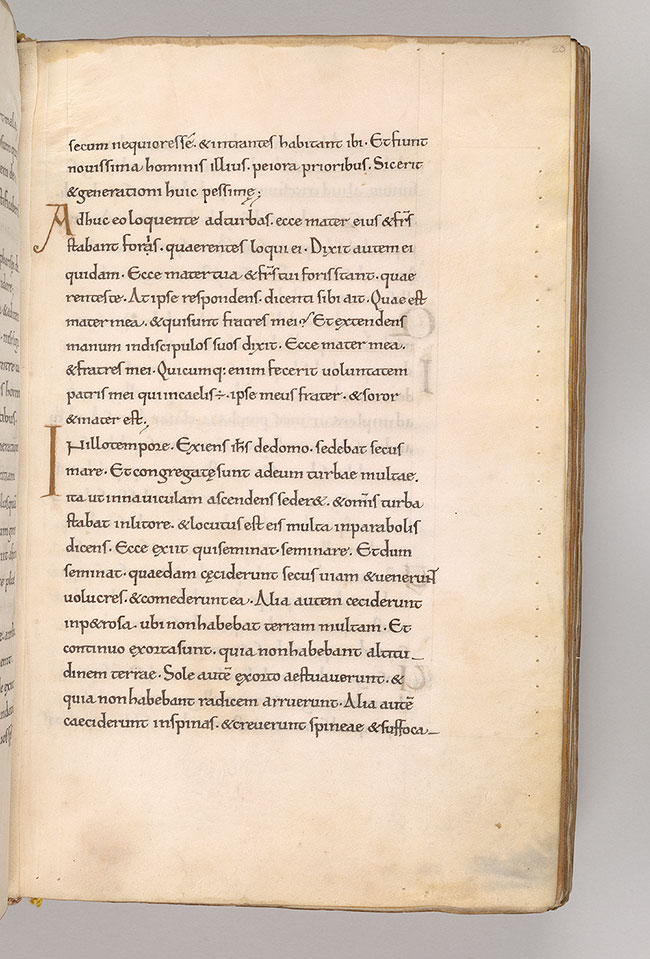 20
secum nequioressē. & intrantes habitant ibi. Et fiunt
nouissima hominis illius. peiora prioribus. Sic erit
& generationi huic pessimę;
Adhuc eo loquente ad turbas. ecce mater eius & frīs
stabant foras. quaerentes loqui ei. Dixit autem ei
quidam. Ecce mater tua & frīs tui foris stant. quae
rentes te. At ipse respondens. dicenti sibi ait. Quae est
mater mea. & qui sunt fratres mei? Et extendens
manum in discipulos suos dixit. Ecce mater mea.
& fratres mei. Quicumq; enim fecerit uoluntatem
patris mei qui in caelis ÷. ipse meus frater. & soror
& mater est;
In illo tempore. Exiens ihs de domo. sedebat secus
mare. Et congregatę sunt ad eum turbae multae.
ita ut in nauiculam ascendens seder&. & omīs turba
stabat in litore. & locutus est eis multa in parabolis
dicens. Ecce exiit qui seminat seminare. Et dum
seminat. quaedam cęciderunt secus uiam & uenerunt
uolucres. & comederunt ea. Alia autem ceciderunt
in p&rosa. ubi non habebat terram multam. Et
continuo exorta sunt. quia non habebant altitu-
dinem terrae. Sole autē exorto aestuauerunt. &
quia non habebant radicem arruerunt. Alia autē
caeciderunt in spinas. & creuerunt spineae & suffoca-